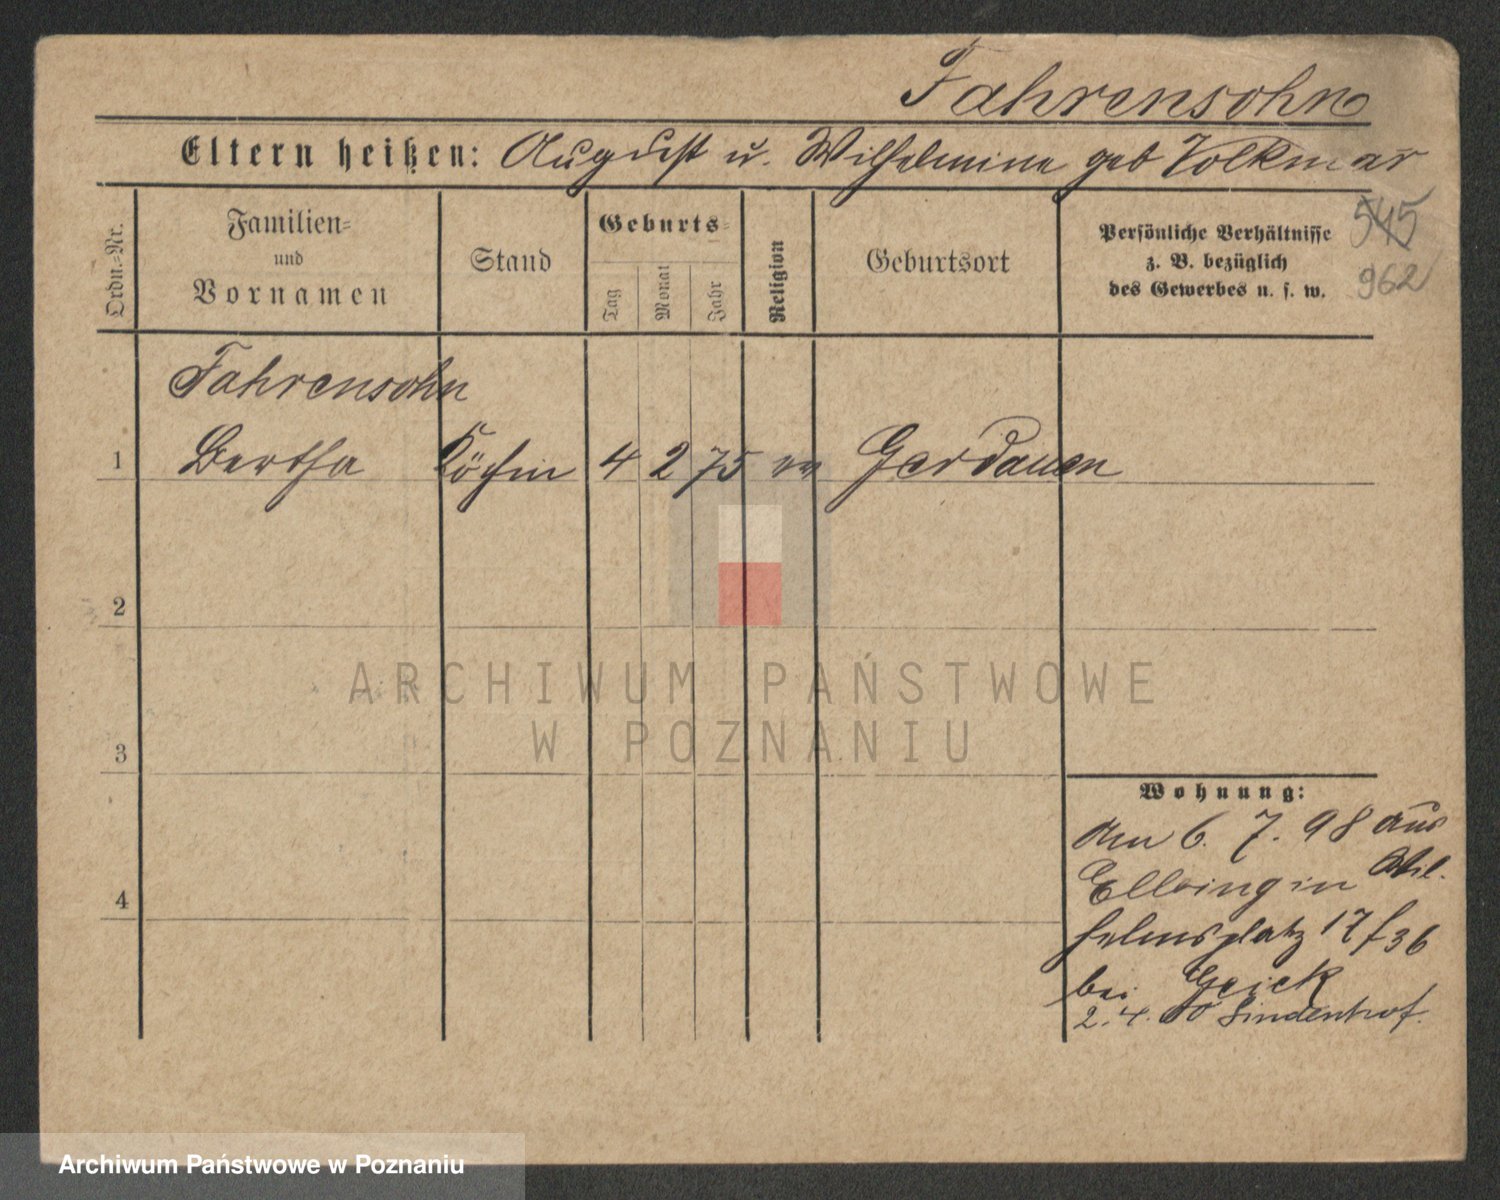 Fahrensohn
Eltern heißen: August u. Wilhelmine geb Volkmar
Ordn.-Nr.
Familien-
und
Vornamen
Stand
Geburts-
Tag
Monat
Jahr
Religion
Geburtsort
Persönliche Verhältnisse
z. B. bezüglich
des Gewerbes u. s. w.
545
962
Fahrensohn
1 Bertha Köchin 4 2 75 ev Gerdauen
2
3
4
ARCHIWUM PAŃSTWOWE
W POZNANIU
Wohnung:
Am 6. 7. 98 aus
Elbing in Wil-
helmsplatz 17 f 36
bei Geick
2. 4. 00 Lindenhof.
Archiwum Państwowe w Poznaniu